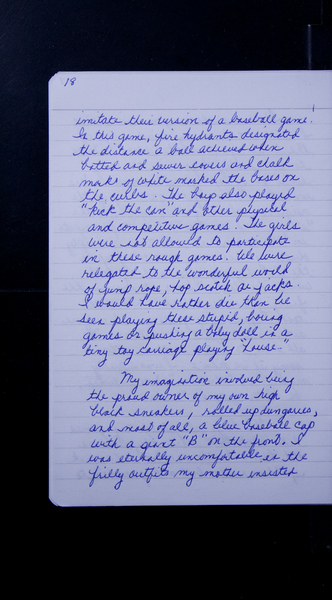 18
imitate their version of a baseball game.
In this game, fire hydrants designated
the distance a ball achieved when
batted and sewer covers and chalk
marks of white marked the bases on
the curbs. The boys also played
"kick the can" and other physical
and competitive games. The girls
were not allowed to participate
in these rough games. We were
relegated to the wonderful world
of jump rope, hop scotch or jacks.
I would have rather die than be
seen playing these stupid, boring
games or pushing a baby doll in a
tiny toy carriage playing "house."
My imagination involved being
the proud owner of my own high
black sneakers, rolled up dungarees,
and most of all, a blue baseball cap
with a giant "B" on the front. I
was eternally uncomfortable in the
frilly outfits my mother insisted